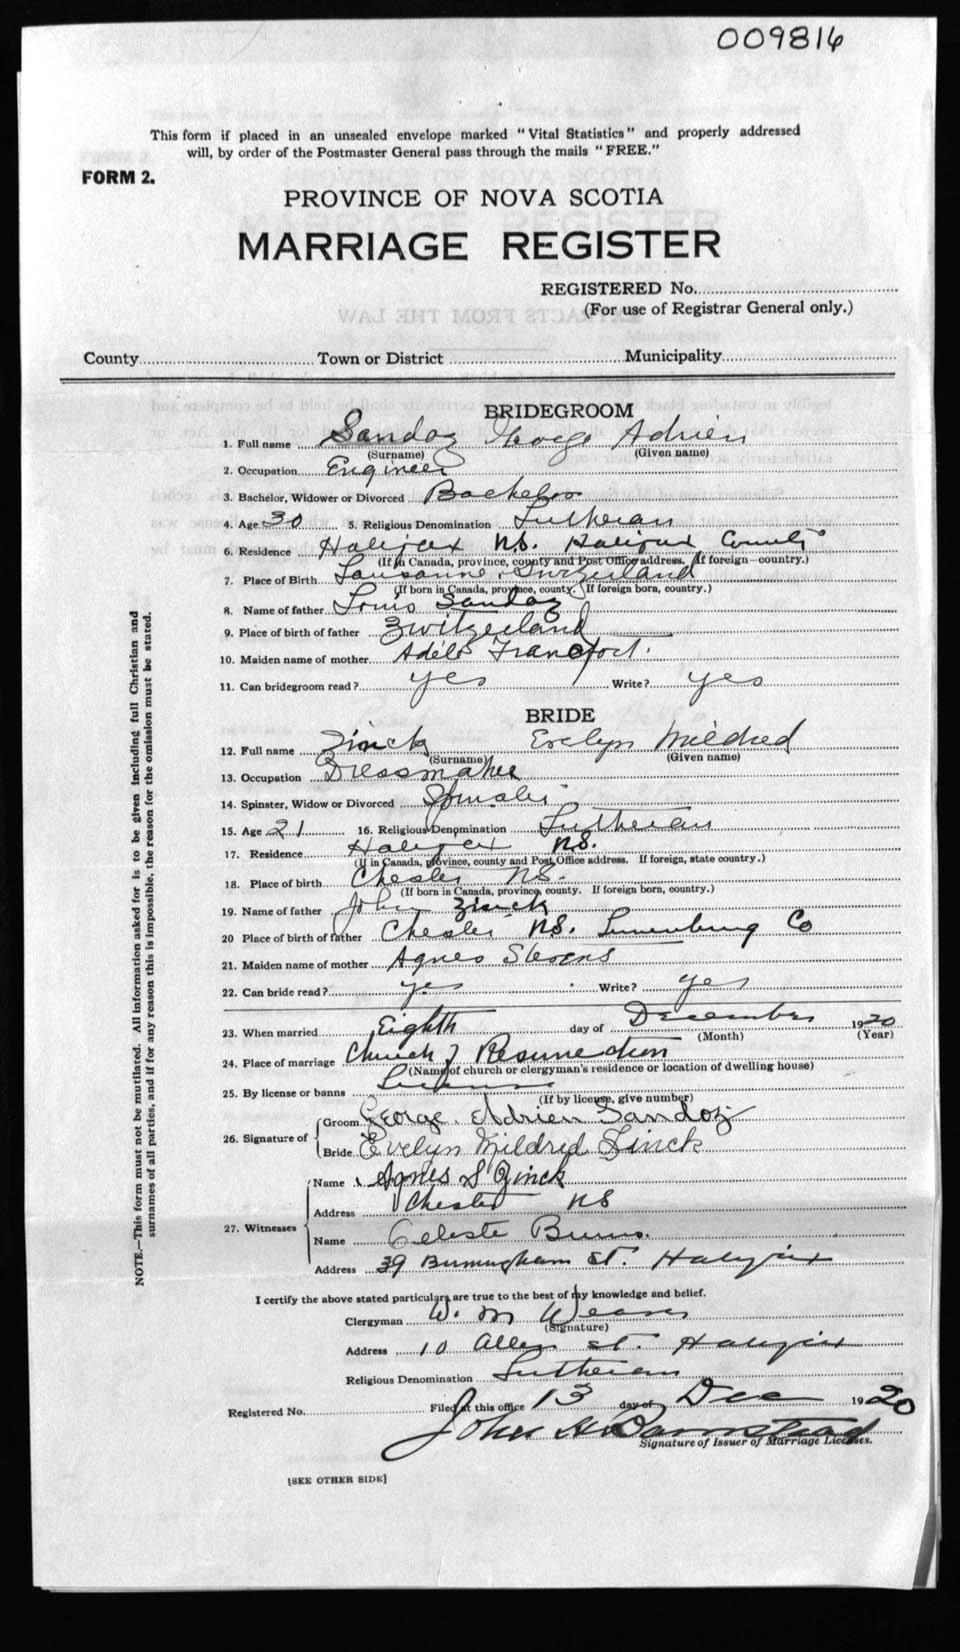 009816
This form if placed in an unsealed envelope marked "Vital Statistics" and properly addressed
will, by order of the Postmaster General pass through the mails "FREE."
FORM 2.
PROVINCE OF NOVA SCOTIA
MARRIAGE REGISTER
REGISTERED No.
(For use of Registrar General only.)
EXTRACTS FROM THE LAW
County Town or District Municipality
BRIDEGROOM
1. Full name Sandoz George Adrien
(Surname) (Given name)
2. Occupation Engineer
3. Bachelor, Widower or Divorced Bachelor
4. Age 30 5. Religious Denomination Lutheran
6. Residence Halifax N.S. Halifax County
(If in Canada, province, county and Post Office address. If foreign—country.)
7. Place of Birth Lausanne, Switzerland
(If born in Canada, province, county. If foreign born, country.)
8. Name of father Louis Sandoz
9. Place of birth of father Zwitzerland
10. Maiden name of mother Adèle Francfort.
11. Can bridegroom read? yes Write? yes
BRIDE
12. Full name Zinck Evelyn Mildred
(Surname) (Given name)
13. Occupation Dressmaker
14. Spinster, Widow or Divorced Spinster
15. Age 21 16. Religious Denomination Lutheran
17. Residence Halifax N.S.
(If in Canada, province, county and Post Office address. If foreign, state country.)
18. Place of birth Chester N.S.
(If born in Canada, province, county. If foreign born, country.)
19. Name of father John Zinck
20 Place of birth of father Chester N.S. Lunenburg Co
21. Maiden name of mother Agnes Stevens
22. Can bride read? yes Write? yes
23. When married Eighth day of December 1920
(Month) (Year)
24. Place of marriage Church of Resurrection
(Name of church or clergyman's residence or location of dwelling house)
25. By license or banns License
(If by license, give number)
26. Signature of Groom George Adrien Sandoz
Bride Evelyn Mildred Zinck
27. Witnesses Name Agnes S Zinck
Address Chester NS
Name Celeste Burns.
Address 39 Birmingham St. Halifax
I certify the above stated particulars are true to the best of my knowledge and belief.
Clergyman W. M Weaver
(Signature)
Address 10 Allen St. Halifax
Religious Denomination Lutheran
Registered No. Filed at this office 13 day of Dec 1920
John H Barnstead
Signature of Issuer of Marriage Licenses.
[SEE OTHER SIDE]
NOTE.—This form must not be mutilated. All information asked for is to be given including full Christian and
surnames of all parties, and if for any reason this is impossible, the reason for the omission must be stated.